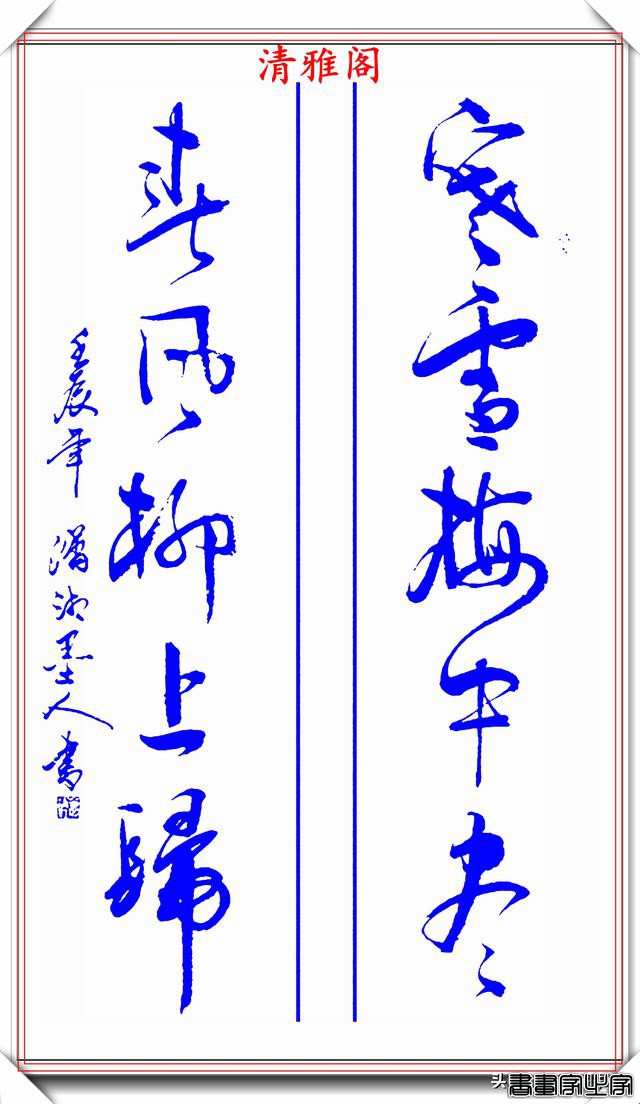 清雅阁
寒雪梅中尽
春风柳上歸
壬辰年 潇湘墨人書
頭条
書畫家必家